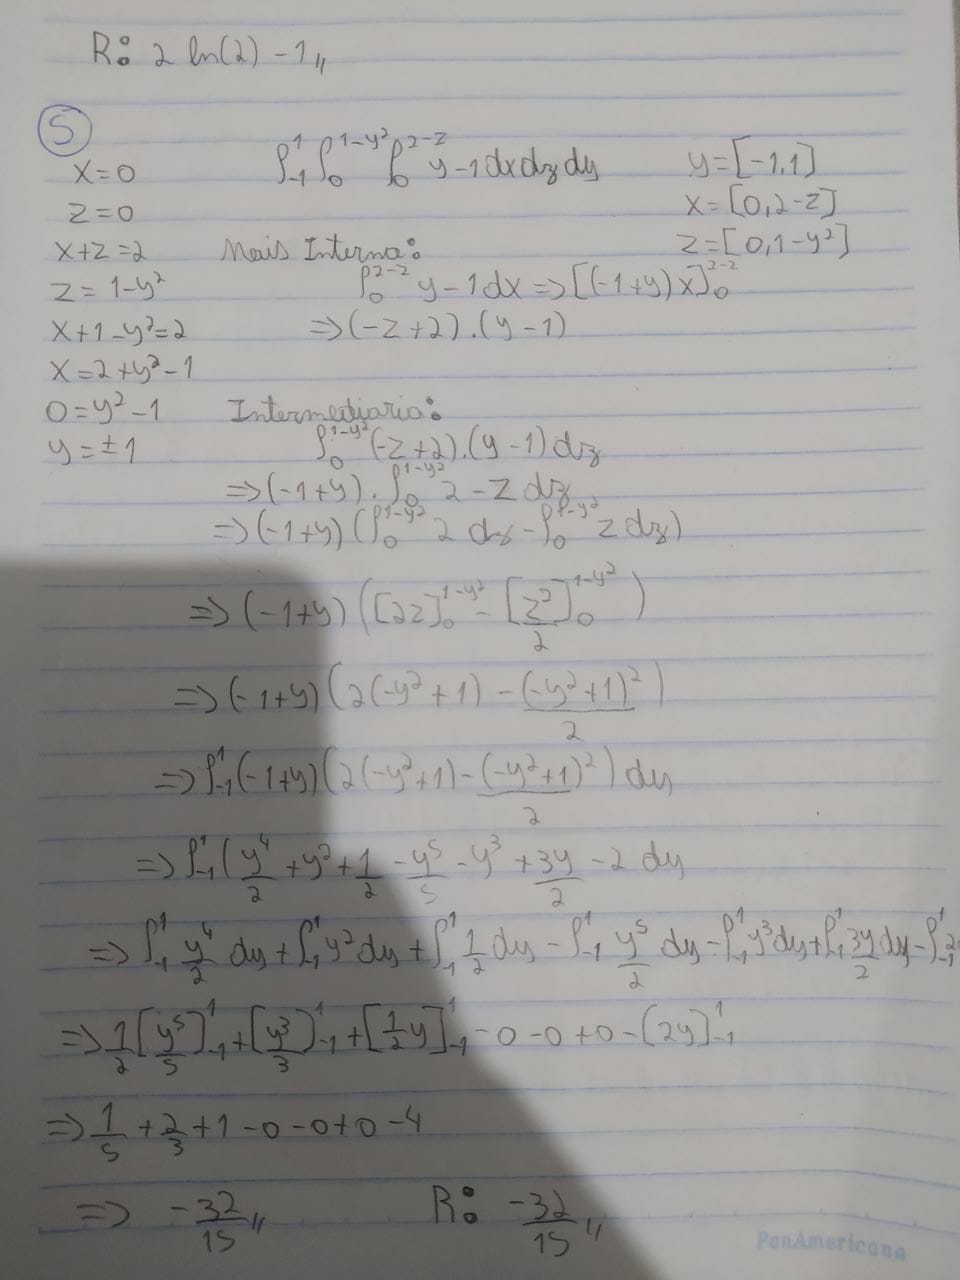 R: 2 ln(2) - 1,,
5
x=0
z=0
x+z=2
z= 1-y²
x+1-y²=2
x=2+y²-1
0=y²-1
y=±1
∫₋₁¹ ∫₀^{1-y²} ∫₀^{2-z} y-1 dx dz dy
y=[-1,1]
x=[0,2-z]
z=[0,1-y²]
Mais Interna:
∫₀^{2-z} y-1 dx => [(-1+y)x]₀^{2-z}
=> (-z+2).(y-1)
Intermediaria:
∫₀^{1-y²} (-z+2).(y-1) dz
=> (-1+y). ∫₀^{1-y²} 2-z dz
=> (-1+y) (∫₀^{1-y²} 2 dz - ∫₀^{1-y²} z dz)
=> (-1+y) ([2z]₀^{1-y²} - [z²/2]₀^{1-y²})
=> (-1+y) (2(-y²+1) - (-y²+1)²/2)
=> ∫₋₁¹ (-1+y) (2(-y²+1) - (-y²+1)²/2) dy
=> ∫₋₁¹ (y⁴/2 + y² + 1/2 - y⁵/5 - y³ + 3y/2 - 2 dy
=> ∫₋₁¹ y⁴/2 dy + ∫₋₁¹ y² dy + ∫₋₁¹ 1/2 dy - ∫₋₁¹ y⁵/2 dy - ∫₋₁¹ y³ dy + ∫₋₁¹ 3y/2 dy - ∫₋₁¹ 2
=> 1/2 [y⁵/5]₋₁¹ + [y³/3]₋₁¹ + [1/2 y]₋₁¹ - 0 - 0 + 0 - [2y]₋₁¹
=> 1/5 + 2/3 + 1 - 0 - 0 + 0 - 4
=> -32/15,, R: -32/15,,
PanAmericana